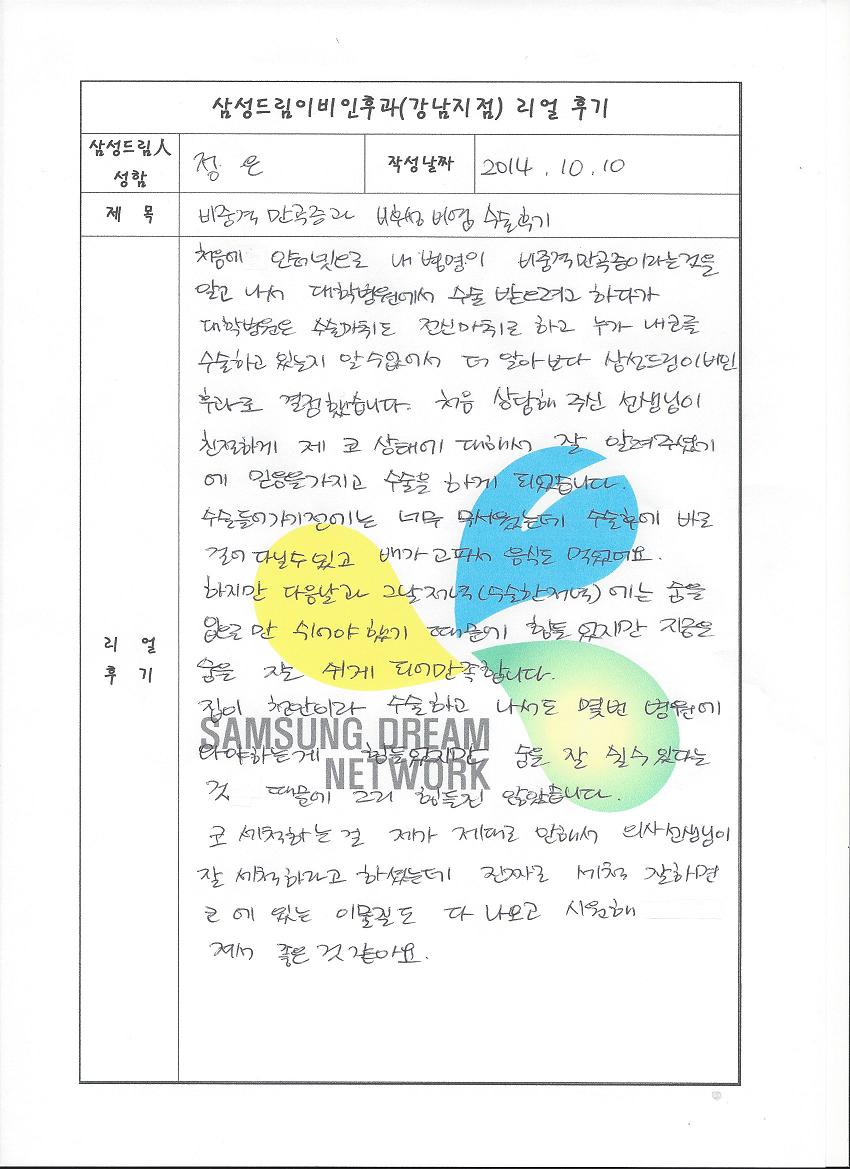 삼성드림이비인후과(강남지점) 리얼 후기
삼성드림人 성함
정 은
작성날짜
2014 . 10 . 10
제 목
비중격 만곡증과 비후성 비염 수술후기
리 얼 후 기
처음에 인터넷으로 내 병명이 비중격만곡증이라는것을
알고 나서 대학병원에서 수술 받으려고 하다가
대학병원은 수술마취도 전신마취로 하고 누가 내코를
수술하고 있는지 알수없어서 더 알아보다 삼성드림이비인
후과로 결정했습니다. 처음 상담해 주신 선생님이
친절하게 제 코 상태에 대해서 잘 알려주셨기
에 믿음을가지고 수술을 하게 되었습니다.
수술들어가기전에는 너무 무서웠는데 수술후에 바로
걸어 다닐수 있고 배가 고파서 음식도 먹었어요.
하지만 다음날과 그날저녁(수술한저녁)에는 숨을
입으로 만 쉬어야 했기 때문에 힘들었지만 지금은
숨을 잘 쉬게 되어만족합니다.
집이 천안이라 수술하고 나서도 몇번 병원에
와야하는게 힘들었지만 숨을 잘 쉴수있다는
것 때문에 그리 힘들진 않았습니다.
코 세척하는 걸 제가 제대로 안해서 의사선생님이
잘 세척하라고 하셨는데 진짜로 세척 잘하면
코에 있는 이물질도 다 나오고 시원해
져서 좋은 것 같아요.
SAMSUNG DREAM
NETWORK